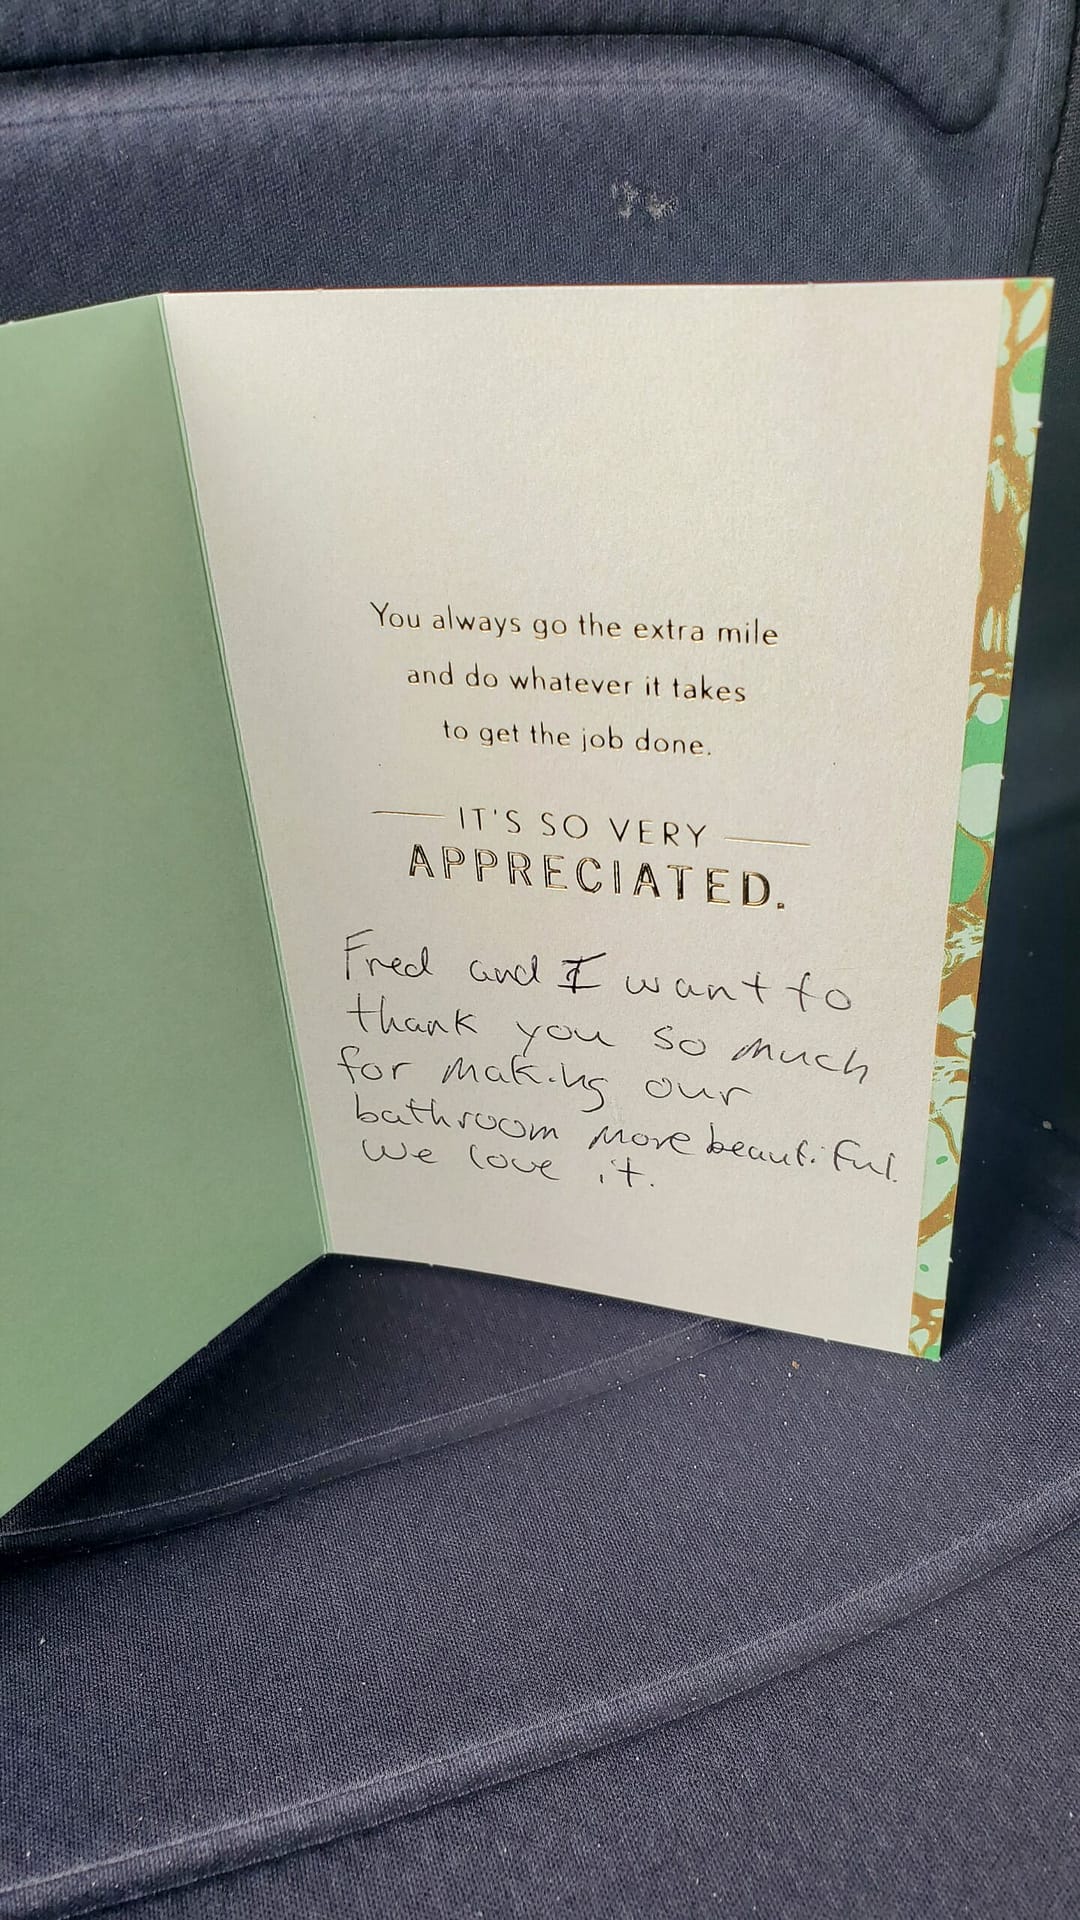 You always go the extra mile
and do whatever it takes
to get the job done.
IT'S SO VERY
APPRECIATED.
Fred and I want to
thank you so much
for making our
bathroom more beautiful.
We love it.